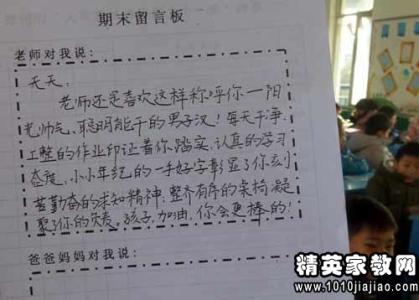 期末留言板
老师对我说:
天天:
老师还是喜欢这样称呼你一阳
光帅气、聪明能干的男子汉!每天干净、
工整的作业印证着你踏实、认真的学习
态度,小小年纪的一手好字彰显了你刻
苦勤奋的求知精神,整齐有序的桌椅凝
聚了你的失责。孩子,加油,你会更棒的!
爸爸妈妈对我说:
精英家教网
www.1010jiajiao.com